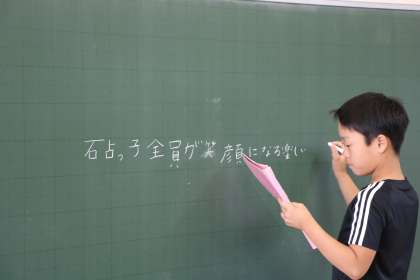 石占っ子全員が笑顔になる楽しい